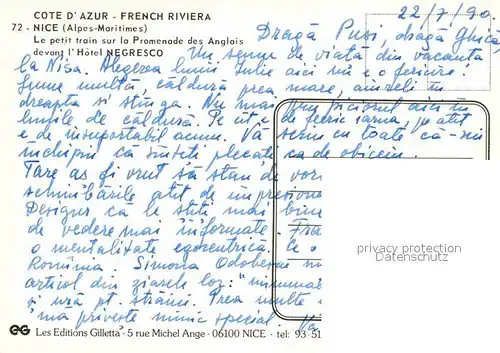 COTE D'AZUR - FRENCH RIVIERA
72 - NICE (Alpes-Maritimes)
Le petit train sur la Promenade des Anglais
devant l'Hôtel NEGRESCO
22/7/90
Dragă Pusi, dragă Ghică
Un semn de viață din vacanța
la Nisa. Alegerea lunii Iulie aici nu e o fericire!
lume multă, căldură prea mare,
dreapta și stînga. Nu mai pun piciorul aici în
lunile de căldură. Pe cît e de feeric iarna, pe atît
e de insuportabil acum. Vă scriu cu toate că-mi
închipui că sînteți plecați ca de obicein.
Tare aș fi vrut să stăm de vor
schimbările atît de impresion
Desigur că le știți mai bine
de vedere mai informate. Fra
o mentalitate egocentrică.
România. Simona
articol din ziarele loz: "
o ură pt. străini. Prea multe
mă privește nimic special. Va
privacy protection
WATERMARK
EG Les Editions Gilletta - 5 rue Michel Ange - 06100 NICE - tel: 93 51